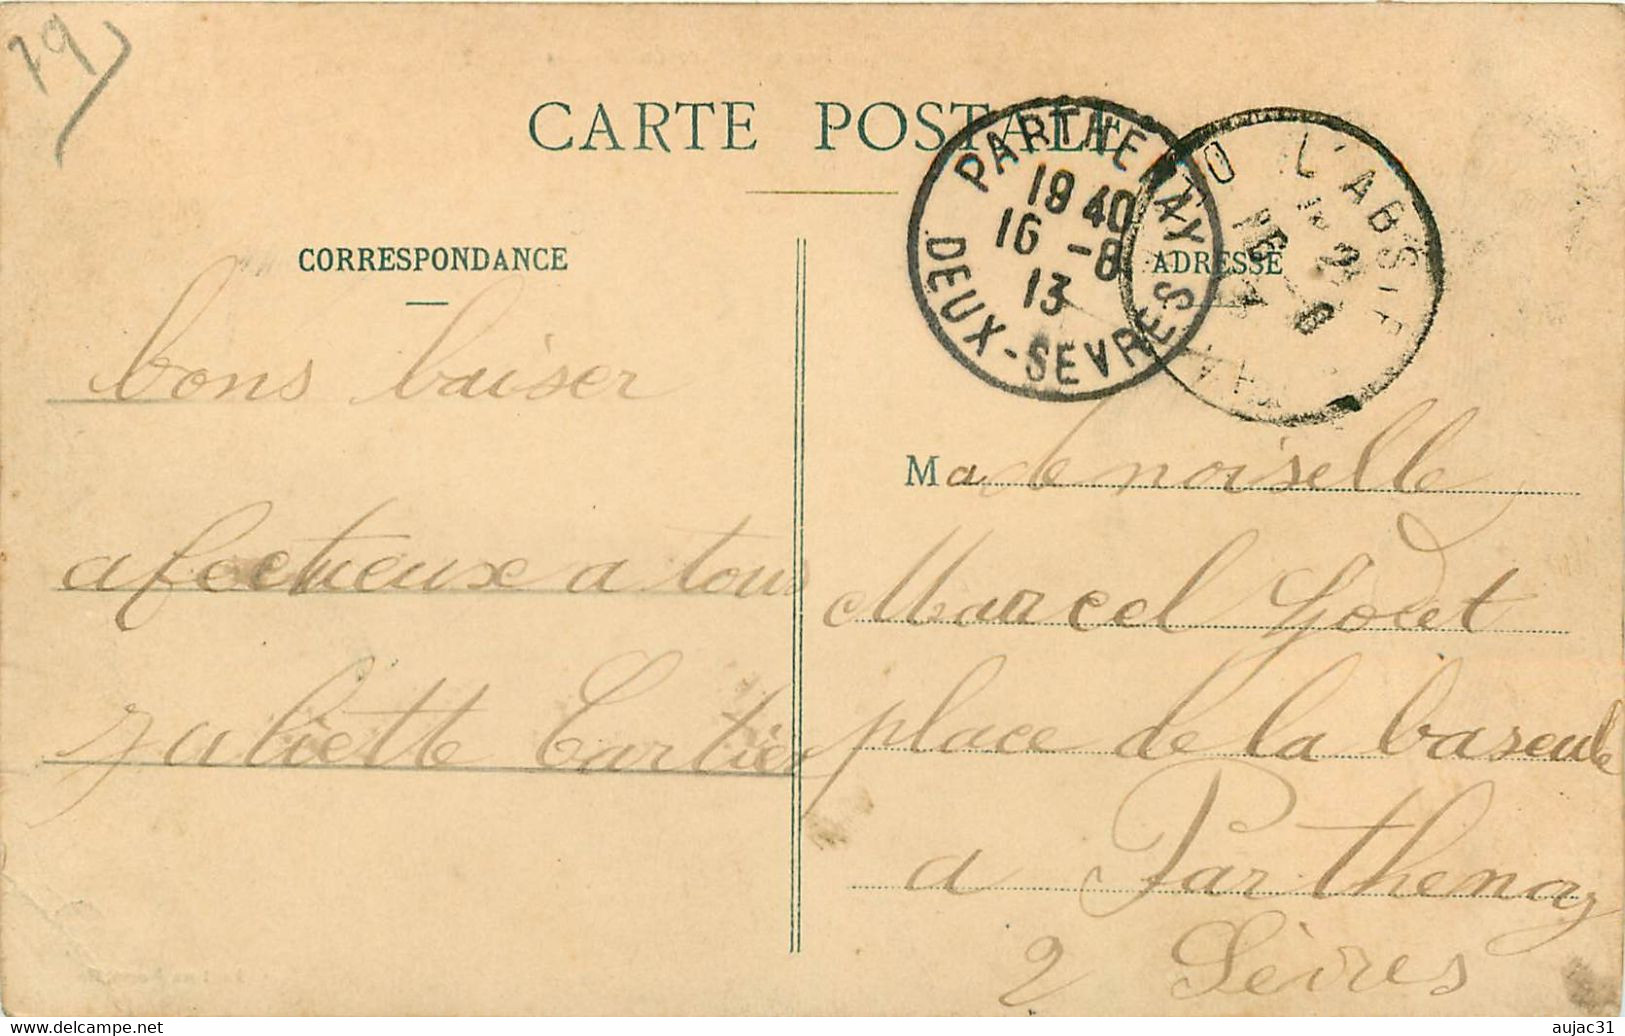 79
CARTE POSTALE
PARTHENAY
19 40
16 -8
13
DEUX-SEVRES
L'ABSIE
CORRESPONDANCE
ADRESSE
bons baiser
afectueux a tous
Juliette Cartier
Mademoiselle
Marcel
place de la bascule
a Parthenay
2 Sèvres
www.delcampe.net
aujac31